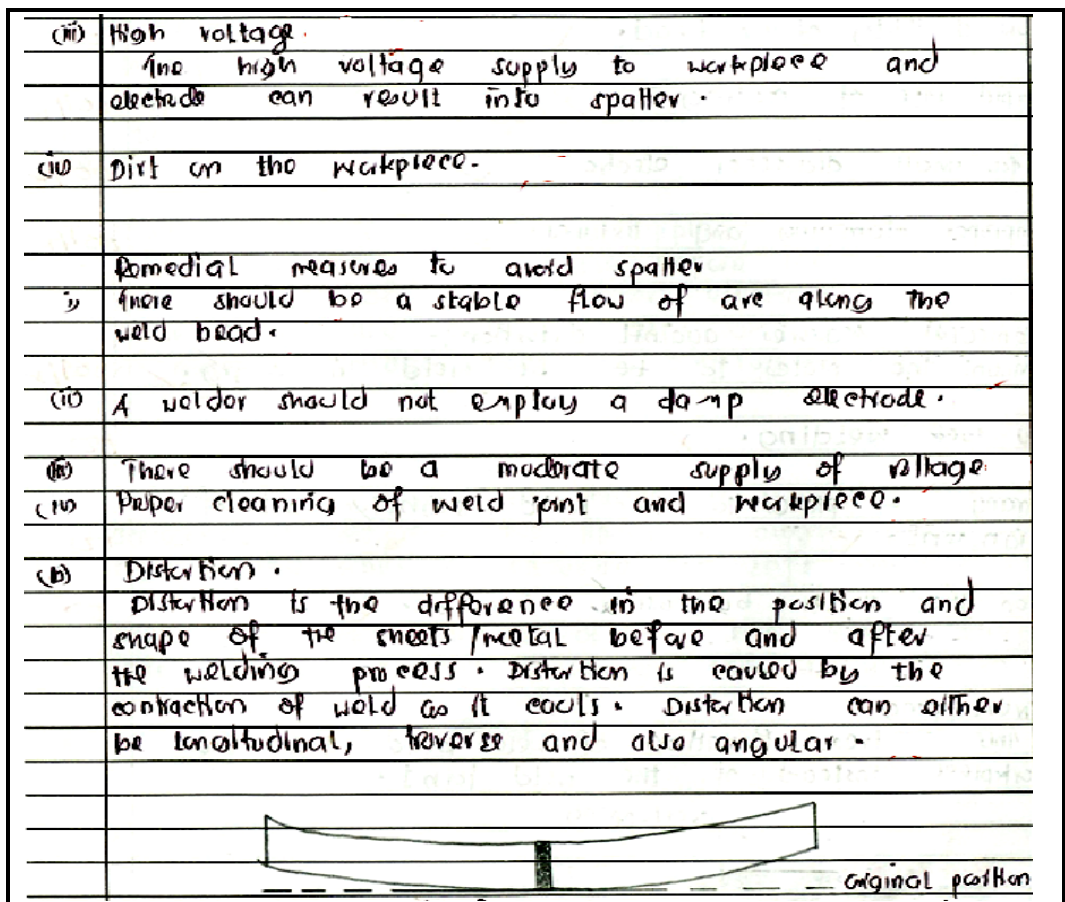 (iii) High voltage.
The high voltage supply to workpiece and
electrode can result into spatter.
(iv) Dirt on the workpiece.
Remedial measures to avoid spatter
i, There should be a stable flow of arc along the
weld bead.
(ii) A welder should not employ a damp electrode.
(iii) There should be a moderate supply of voltage
(iv) Proper cleaning of weld joint and workpiece.
(b) Distortion.
Distortion is the difference in the position and
shape of the sheets/metal before and after
the welding process. Distortion is caused by the
contraction of weld as it cools. Distortion can either
be longitudinal, traverse and also angular.
original position